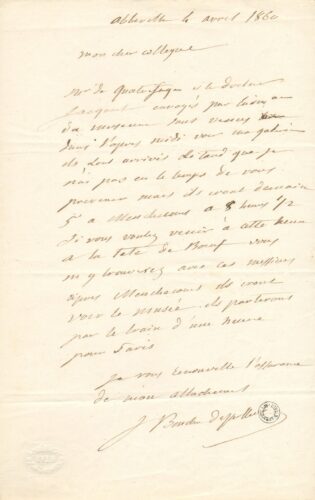 abbeville le avril 1860
mon cher collègue
Mr de Quatrefages et le docteur
envoyés par
du museum sont venus
dans l'apres midi voir ma galerie
ils sont arrivés si tard que je
n'ai pas eu le temps de vous
prevenir mais ils iront demain
5 a Menchecourt a 8 heures 1/2
Si vous voulez venir a cette heure
a la tete de Boeuf vous
m'y trouverez avec ces messieurs
après Menchecourt ils iront
voir le Musée ils partiront
par le train d'une heure
pour Paris
Je vous renouvelle l'expression
de mon attachement
J Boucher de Perthes